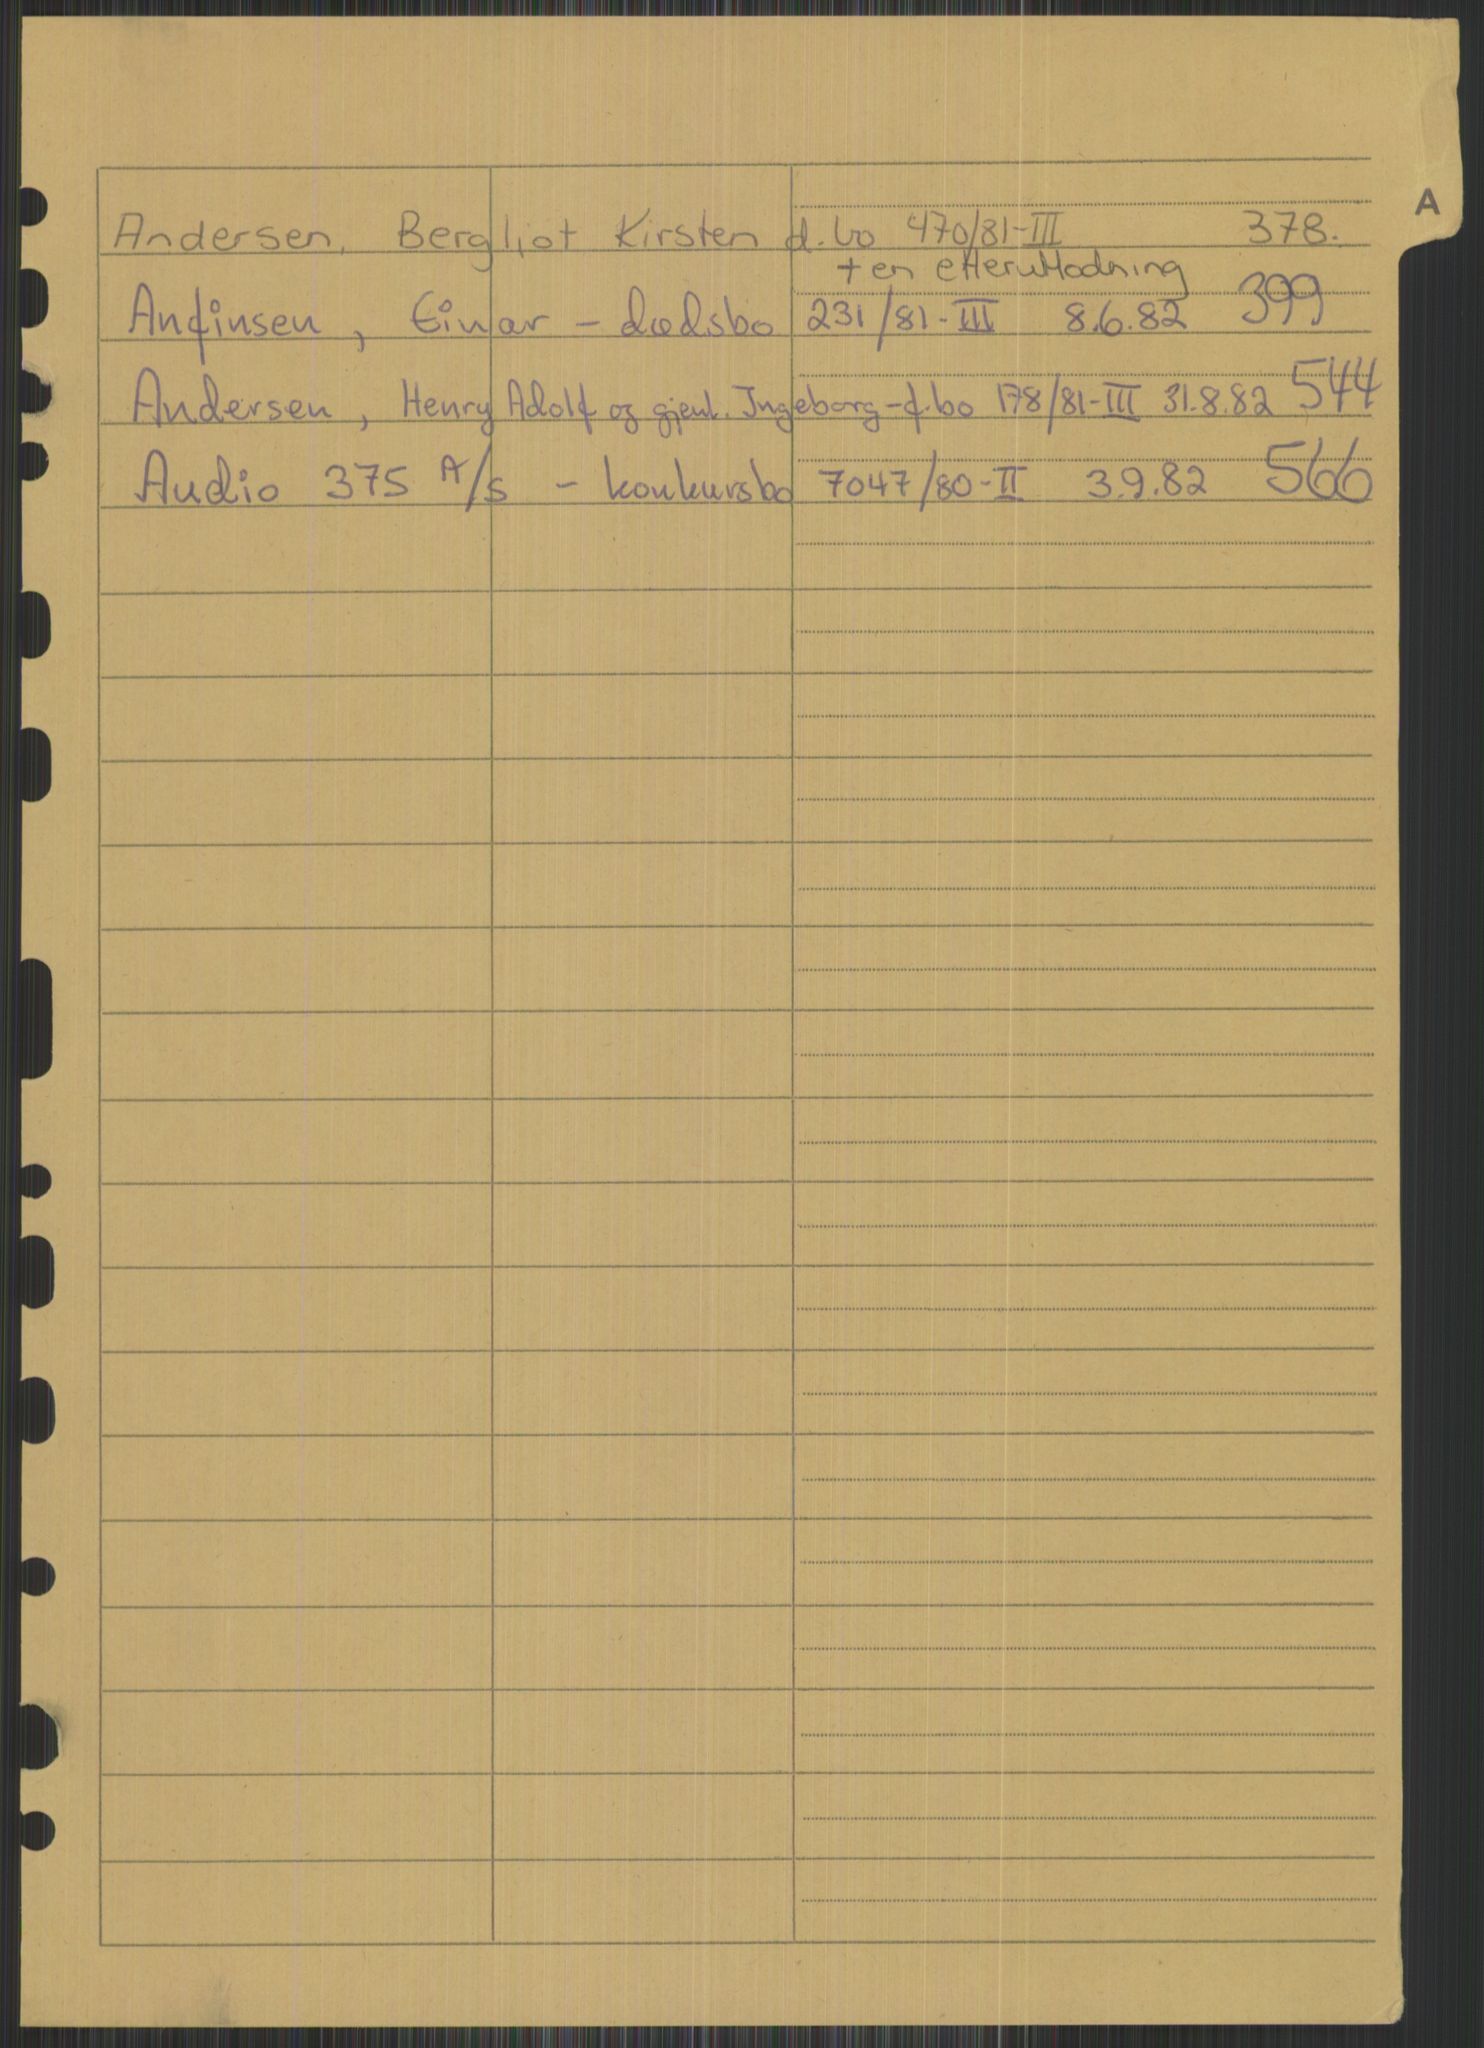 A
Andersen, Bergljot Kirsten d.bo 470/81-III 378.
+ en etterutlodning
Anfinsen, Einar - dødsbo 231/81-III 8.6.82 399
Andersen, Henry Adolf og gjenl. Ingeborg - f.bo 178/81-III 31.8.82 544
Audio 375 A/s - konkursbo 7047/80-II 3.9.82 566